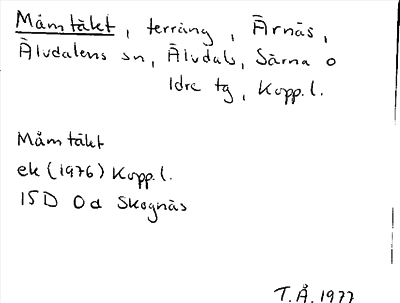 Måmtäkt, terräng, Årnäs,
Älvdalens sn, Älvdals, Särna o
Idre tg, Kopp.l.
Måmtäkt
ek (1976) Kopp.l.
15D 0d Skognäs
T.Å. 1977